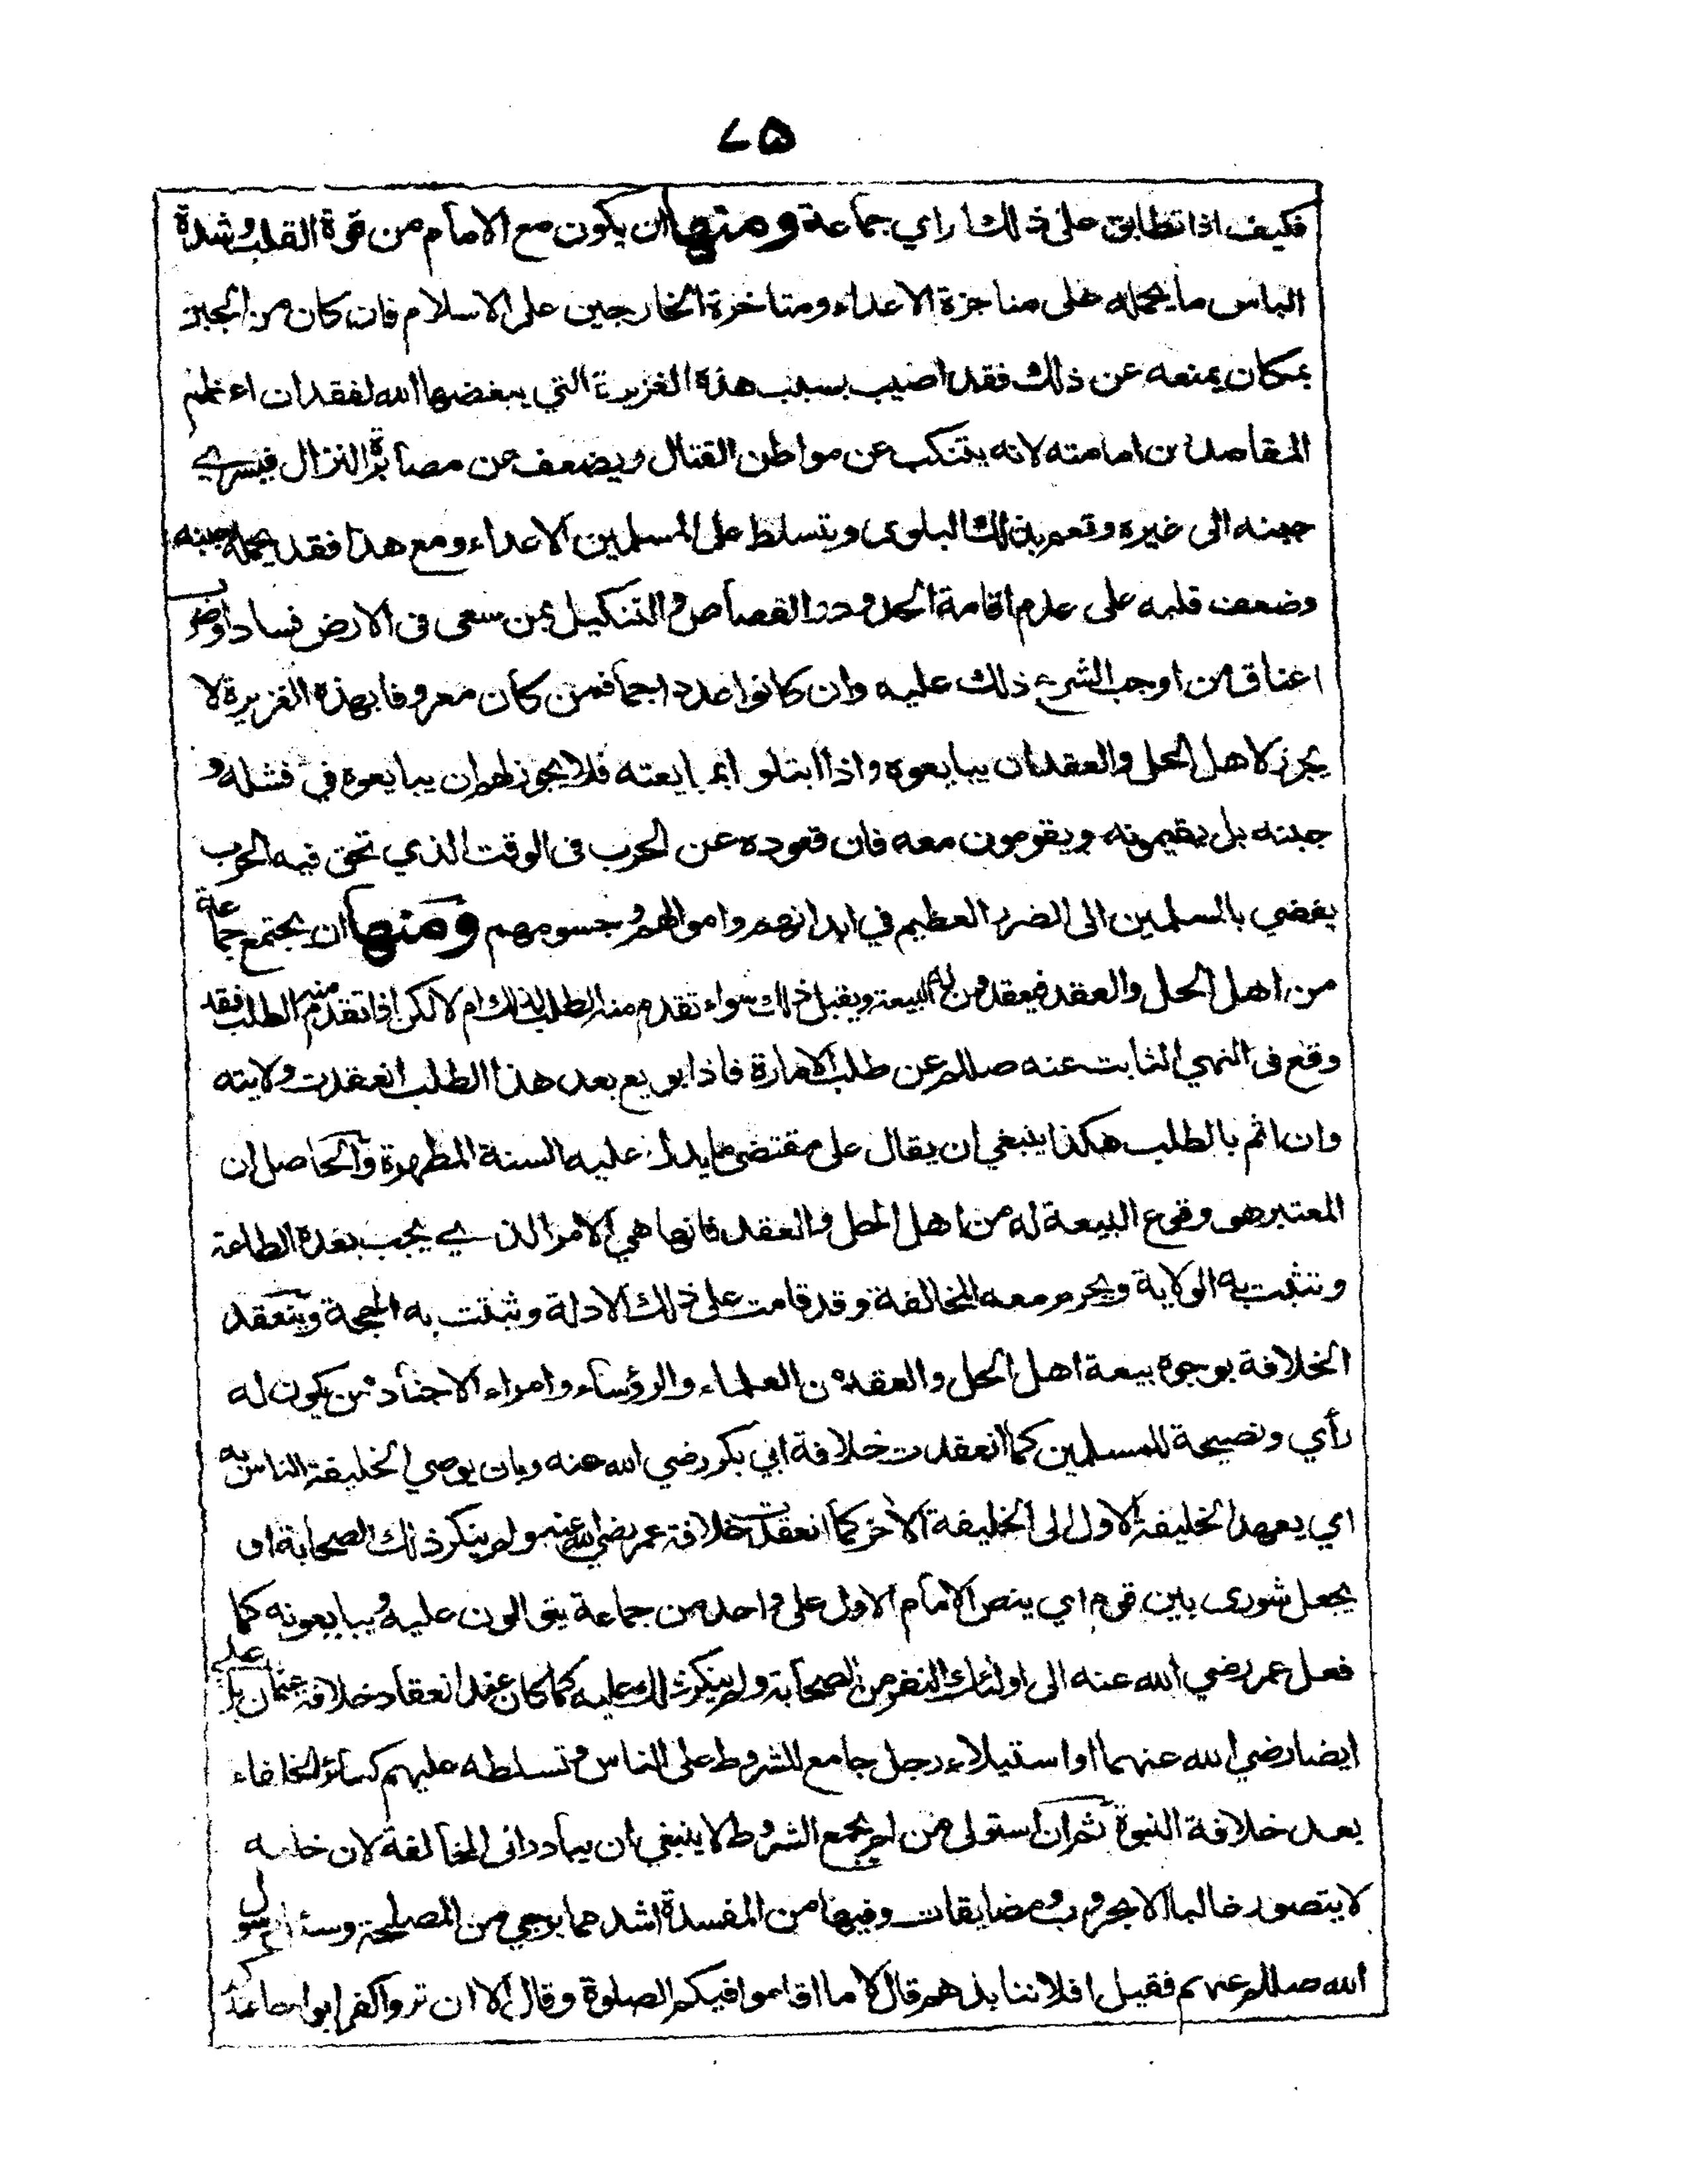 ٧٥
فكيف اذا تطابق على ذلك راي جماعة ومنها ان يكون مع الامام من قوة القلب وشدة
الباس ما يحمله على مناجزة الاعداء ومتاخرة الخارجين على الاسلام فان كان من الجبن
بمكان يمنعه عن ذلك فقد اصيب بسبب هذه الغزيرة التي يبغضها الله لفقدان اعظم
المقاصد من امامته لانه يتنكب عن مواطن القتال ويضعف عن مصابرة النزال فيسري
جبنه الى غيره وتعم بذلك البلوى ويتسلط على المسلمين الاعداء ومع هذا فقد يحمله جبنه
وضعف قلبه على عدم اقامة الحدود والقصاص والتنكيل بمن سعى فى الارض فسادا وضرب
اعناق من اوجب الشرع ذلك عليه وان كانوا عددا جما فمن كان معروفا بهذه الغزيرة لا
يجوز لاهل الحل والعقد ان يبايعوه واذا ابتلوا بمبايعته فلا يجوز لهم ان يبايعوه في فشله و
جبنه بل يقيمونه ويقومون معه فان قعوده عن الحرب فى الوقت الذي تحق فيه الحرب
يفضي بالمسلمين الى الضرر العظيم في ابدانهم واموالهم وجسومهم ومنها ان يجتمع جماعة
من اهل الحل والعقد فيعقدون له البيعة ويقبل ذلك سواء تقدم منه الطلب لذلك ام لا لكن اذا تقدم منه الطلب فقد
وقع فى النهي الثابت عنه صللم عن طلب الامارة فاذا بويع بعد هذا الطلب انعقدت ولايته
وان اثم بالطلب هكذا ينبغي ان يقال على مقتضى ما يدل عليه السنة المطهرة والحاصل ان
المعتبر هو وقوع البيعة له من اهل الحل والعقد فانها هي الامر الذي يجب بعده الطاعة
وتثبت به الولاية ويحرم معه المخالفة وقد قامت على ذلك الادلة وثبتت به الحجة وتنعقد
الخلافة بوجوه بيعة اهل الحل والعقد من العلماء والرؤساء وامراء الاجناد ممن يكون له
رأي ونصيحة للمسلمين كما انعقدت خلافة ابي بكر رضي الله عنه وبان يوصي الخليفة الناس به
اي يعهد الخليفة الاول الى الخليفة الآخر كما انعقدت خلافة عمر رضي الله عنه ولم ينكر ذلك الصحابة او
يجعل شورى بين قوم اي ينص الامام الاول على واحد من جماعة يتوالون عليه ويبايعونه كما
فعل عمر رضي الله عنه الى اولئك النفر من الصحابة ولم ينكر ذلك عليه كما كان عند انعقاد خلافة عثمان بل علي
ايضا رضي الله عنهما او استيلاء رجل جامع للشروط على الناس وتسلطه عليهم كسائر الخلفاء
بعد خلافة النبوة ثم ان استولى من لم يجمع الشروط لا ينبغي ان يبادر الى المخالفة لان خلعه
لا يتصور غالبا الا بحروب ومضايقات وفيها من المفسدة اشد مما يرجى من المصلحة وسئل رسول
الله صللم عنهم فقيل افلا ننابذهم قال لا ما اقاموا فيكم الصلوة وقال الا ان تروا كفرا بواحا عندكم